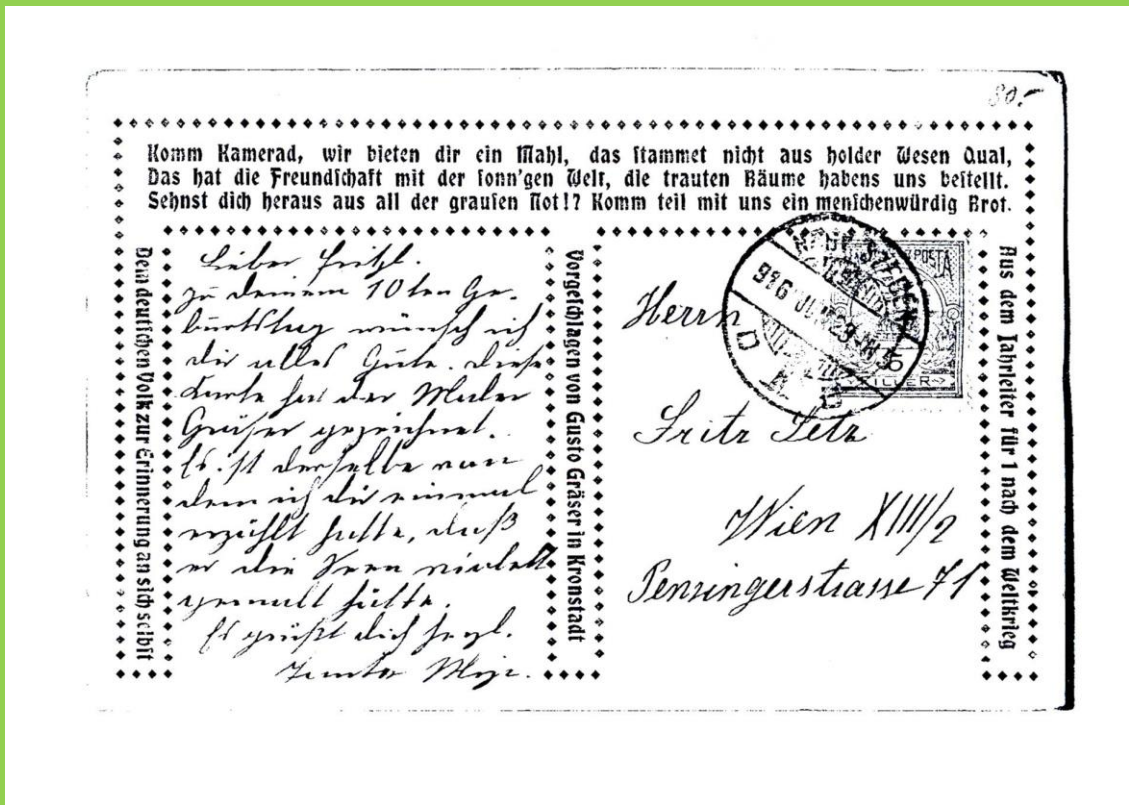 80.-
Komm Kamerad, wir bieten dir ein Mahl, das stammet nicht aus holder Wesen Qual,
Das hat die Freundschaft mit der sonn'gen Welt, die trauten Bäume habens uns bestellt.
Sehnst dich heraus aus all der grausen Not!? Komm teil mit uns ein menschenwürdig Brot.
Dem deutschen Volk zur Erinnerung an sich selbst
Lieber Fritzl.
Zu deinem 10ten Ge-
burtstag wünsch ich
dir alles Gute. Diese
Karte hat der Maler
Gräser gezeichnet.
Es ist derselbe von
dem ich dir einmal
erzählt hatte, daß
er die violett
gemalt hätte.
Es grüßt dich herzl.
Tante
Vorgeschlagen von Gusto Gräser in Kronstadt
SZEBEN
916 JUN 29
FILLER
Herrn
Fritz
Wien XIII/2
Penzingerstrasse 71
Aus dem Jahrleiter für 1 nach dem Weltkrieg